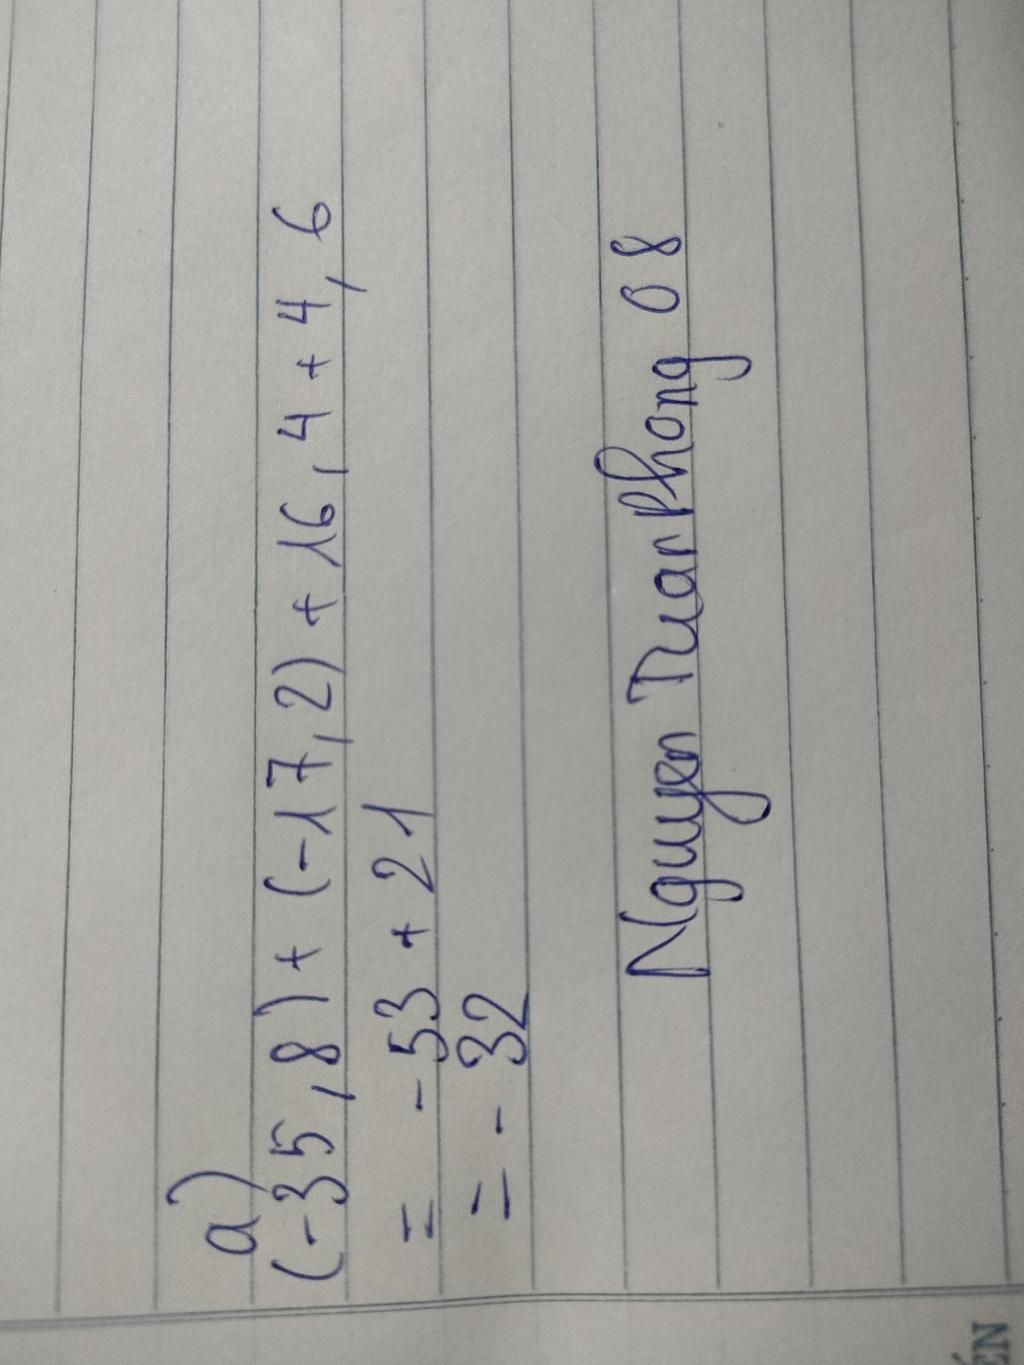 a)
(-35,8) + (-17,2) + 16,4 + 4,6
= -53 + 21
= -32
Nguyen Tuan Phong 08